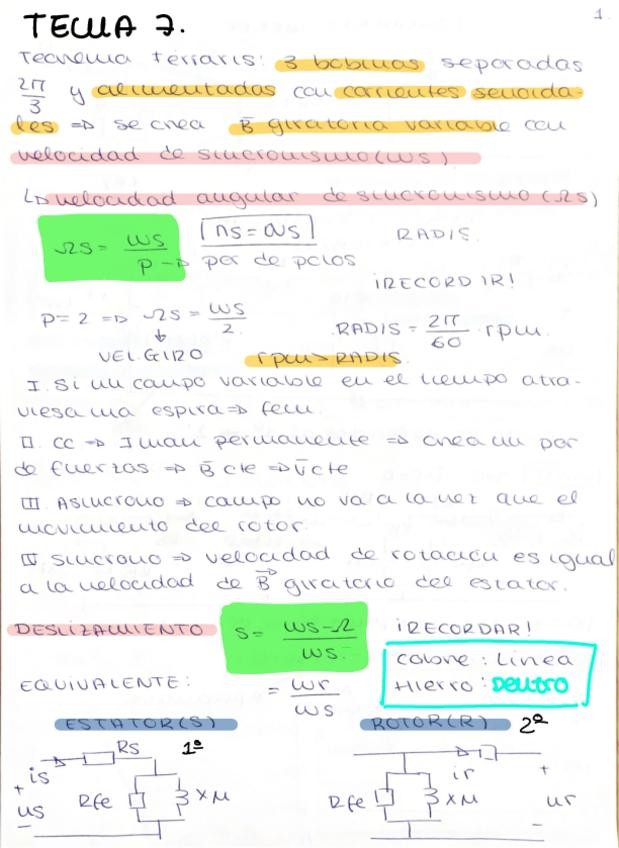 1.
TEMA 7.
Teorema Ferraris: 3 bobinas separadas
2π/3 y alimentadas con corrientes senoida-
les => se crea B giratoria variable con
velocidad de sincronismo (ωs)
↳ velocidad angular de sincronismo (Ωs)
Ωs = ωs/p → par de polos
RAD/S.
¡RECORDIR!
P = 2 => Ωs = ωs/2.
RAD/S = 2π/60 · rpm.
↓
VEL GIRO
rpm > RAD/S.
I. Si un campo variable en el tiempo atra-
viesa una espira => fem.
II. CC => Iman permanente => crea un par
de fuerzas => B cte => v cte
III. Asincrono => campo no va a la vez que el
movimiento del rotor.
IV. Sincrono => velocidad de rotación es igual
a la velocidad de B giratorio del estator.
DESLIZAMIENTO
S = ωs-Ω/ωs.
¡RECORDAR!
Cobre : Línea
Hierro : Dentro
EQUIVALENTE:
= ωr/ωs
ESTATOR(S) 1ª
ROTOR(R) 2ª
is Rs
+ us -
Rfe XM
ir
Rfe XM
+ ur -